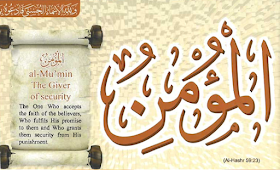 وَلِلَّهِ الْأَسْمَاءُ الْحُسْنَى فَادْعُوهُ بِهَا
الْمُؤْمِنُ
al-Mu'min
The Giver
of security
The One Who accepts
the faith of the believers,
Who fulfils His promise
to them and Who grants
them security from His
punishment.
الْمُؤْمِنُ
(Al-Hashr 59:23)